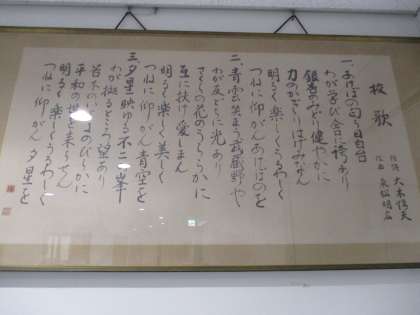 校歌
作詞 大木惇夫
一、あけぼの匂う目白台
わが学び舎に誇あり
銀杏のみどり健やかに
力のかぎりはげみなん
明るく楽しくうるわしく
つねに仰がんあけぼのを
二、青雲笑まう武蔵野や
わが友どちに光あり
さくらの花のうらうらに
互に扶け愛しまん
明るく楽しく美しく
つねに仰がん青空を
三、夕星映ゆる不二ヶ峯
わが拠るところ望あり
平和の世を来らせん
明るく楽しくうるわしく
つねに仰がん夕星を